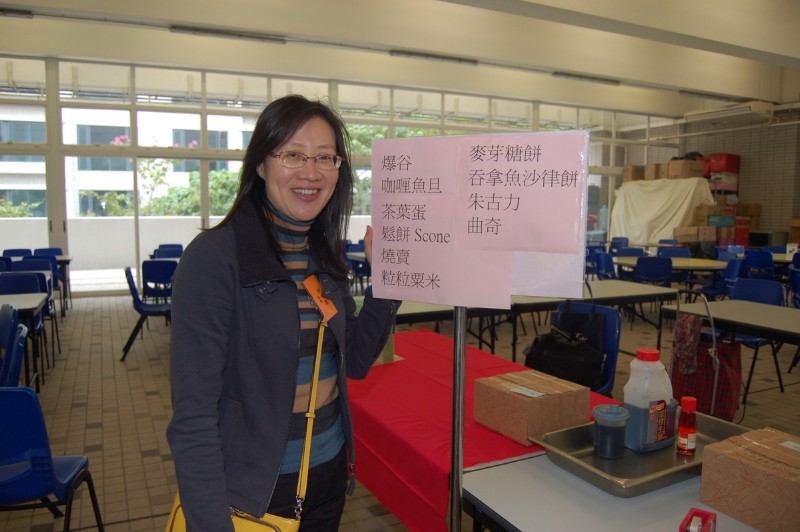 爆谷
咖喱魚旦
茶葉蛋
鬆餅 Scone
燒賣
粒粒粟米
麥芽糖餅
吞拿魚沙律餅
朱古力
曲奇